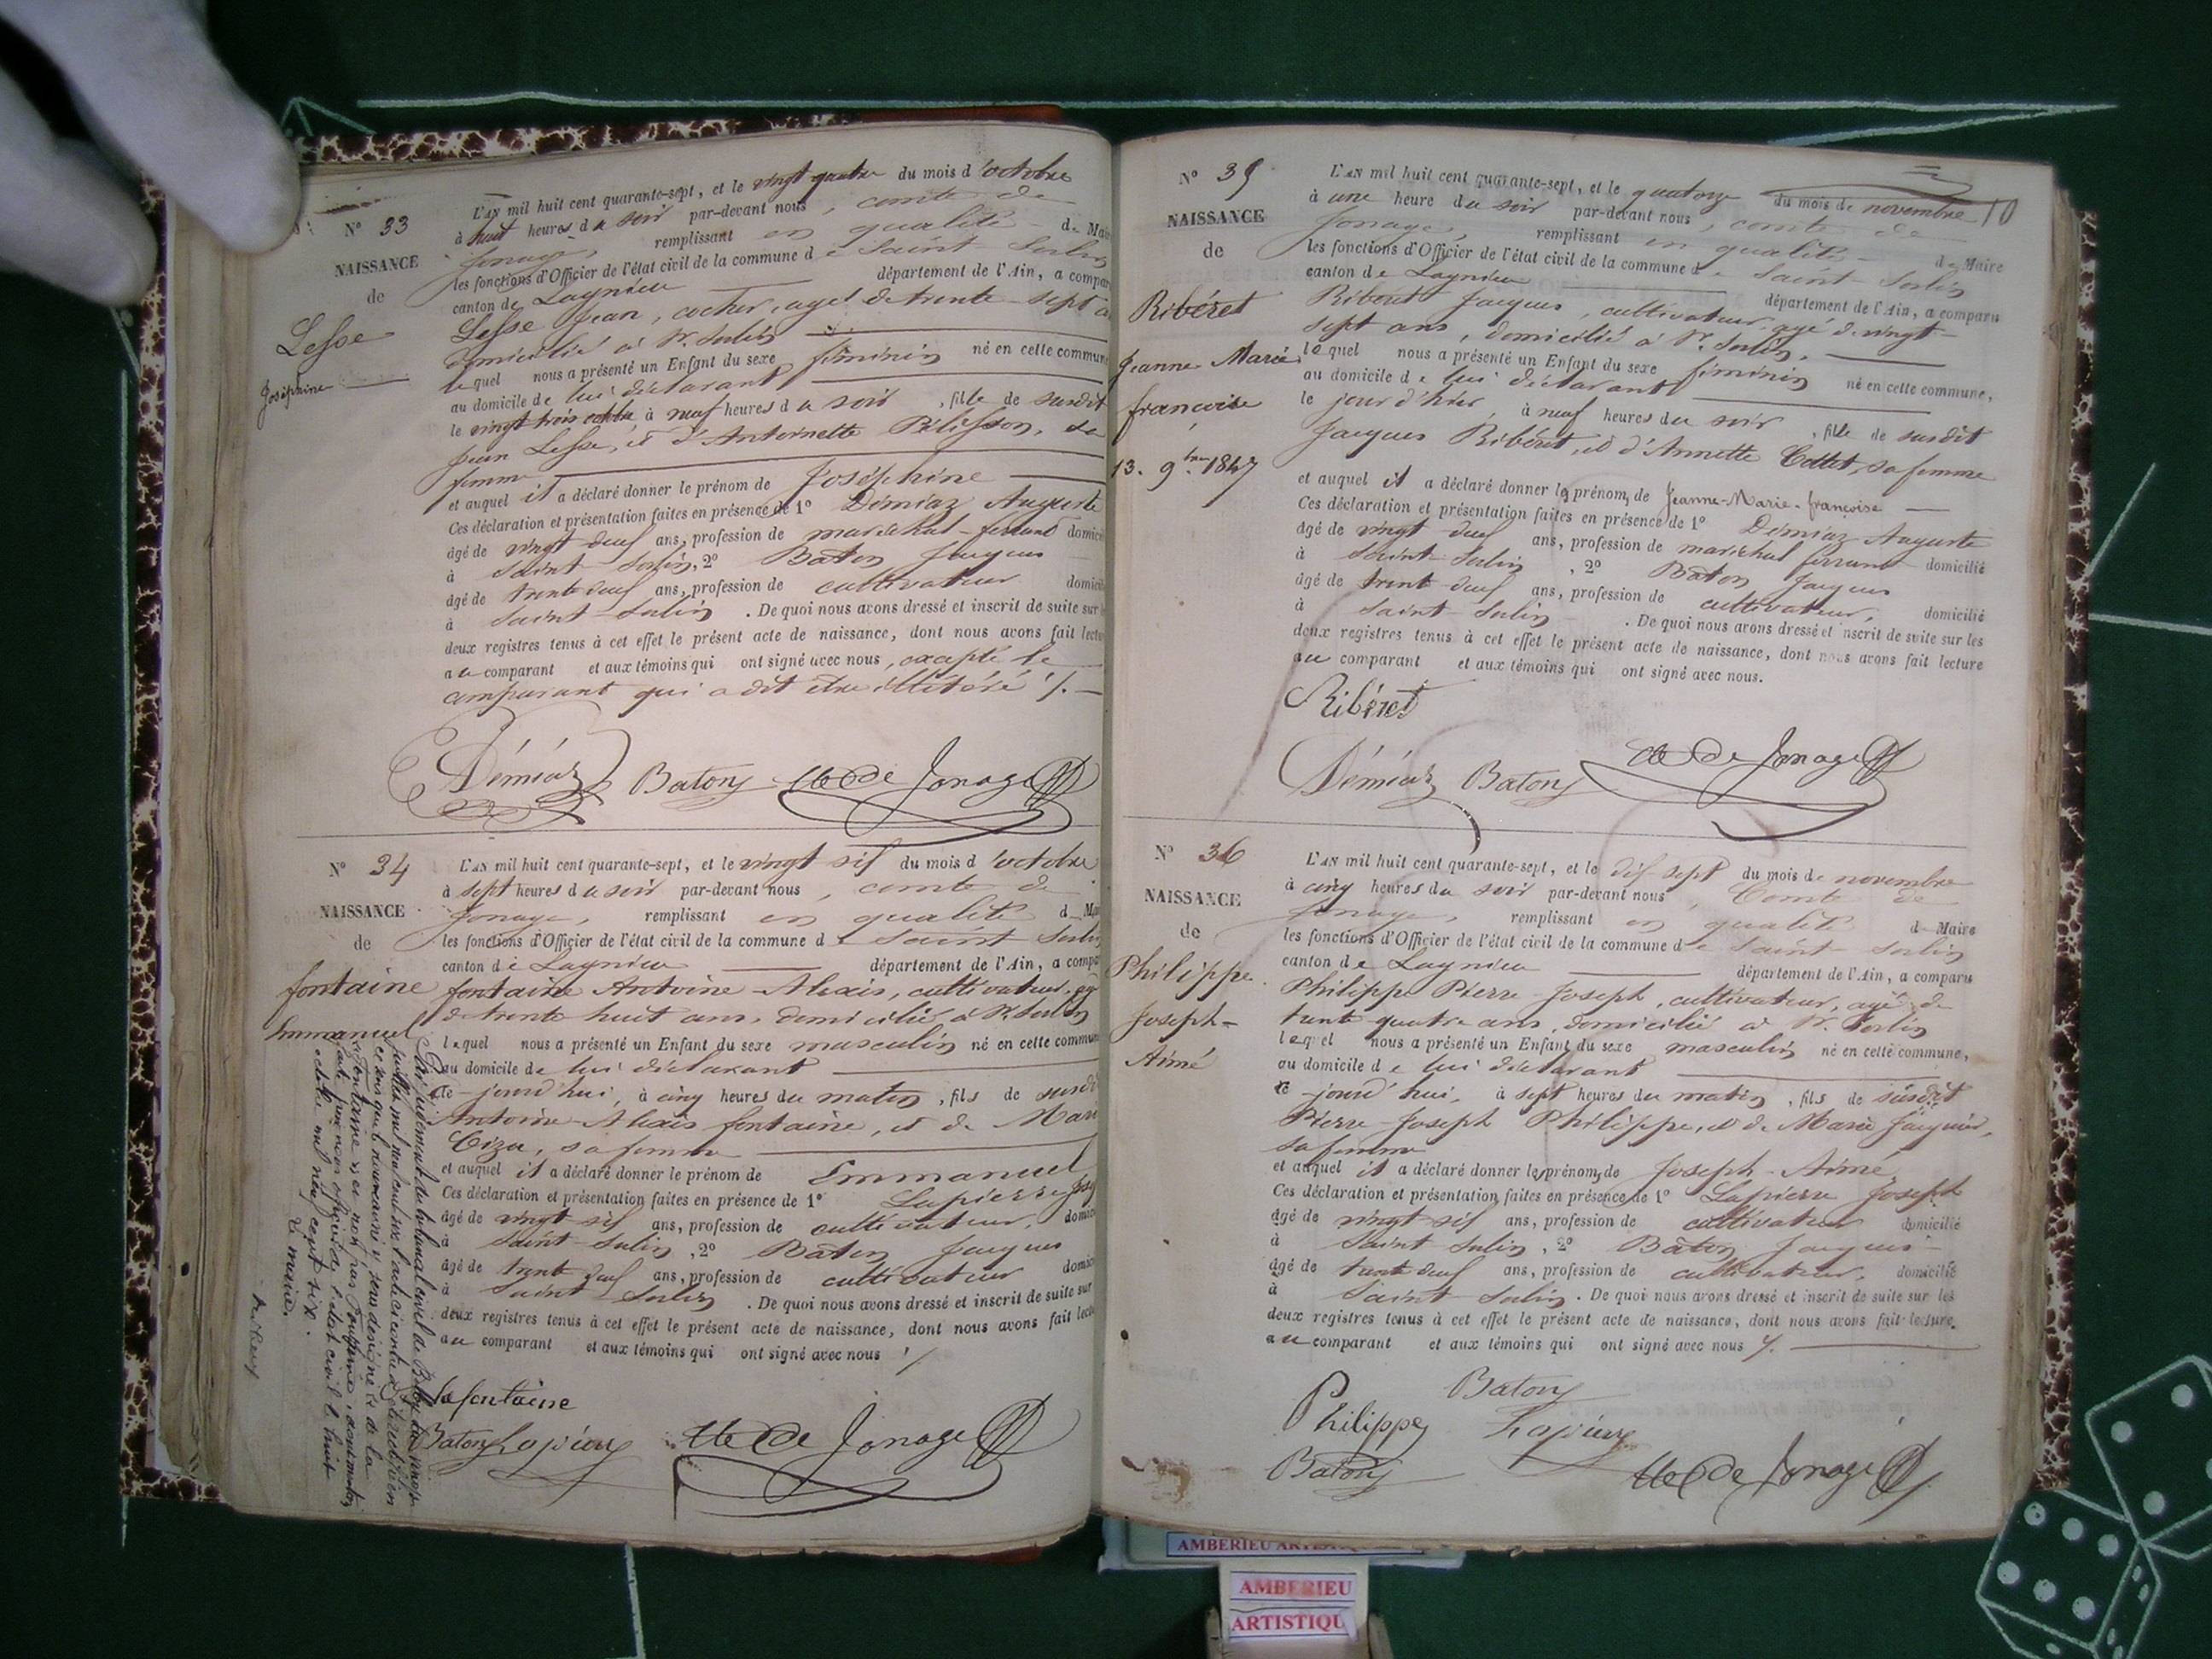 N° 33
NAISSANCE
de
Lesse
Joséphine
L'AN mil huit cent quarante-sept, et le vingt quatre du mois d'octobre
à huit heures du soir par-devant nous, comte de
Jonage, remplissant en qualité de Maire
les fonctions d'Officier de l'état civil de la commune de Saint Sorlin
canton de Lagnieu département de l'Ain, a compar
Lesse Jean, cocher, agé de trente-sept a
domicilié à St. Sorlin
lequel nous a présenté un Enfant du sexe féminin né en cette commune
au domicile de lui déclarant
le vingt trois octobre, à neuf heures du soir, fille de susdit
Jean Lesse, et d'Antoinette Pélisson, sa
femme
et auquel il a déclaré donner le prénom de Joséphine
Ces déclaration et présentation faites en présence de 1° Démiaz Auguste
âgé de vingt deux ans, profession de maréchal-ferrant domici
à Saint Sorlin, 2° Baton Jacques
âgé de trente deux ans, profession de cultivateur domicili
à Saint-Sorlin. De quoi nous avons dressé et inscrit de suite sur
deux registres tenus à cet effet le présent acte de naissance, dont nous avons fait lectu
au comparant et aux témoins qui ont signé avec nous, excepté le
comparant qui a dit être illétéré /.
Démiaz Baton Cte De Jonage
N° 34
NAISSANCE
de
fontaine
Emmanuel
L'AN mil huit cent quarante-sept, et le vingt six du mois d'octobre
à sept heures du soir par-devant nous, comte de
Jonage, remplissant en qualité de Mai
les fonctions d'Officier de l'état civil de la commune de Saint Sorlin
canton de Lagnieu département de l'Ain, a compa
fontaine Antoine-Alexis, cultivateur, ag
de trente huit ans, domicilié à St. Sorlin
lequel nous a présenté un Enfant du sexe masculin né en cette commune
au domicile de lui déclarant
ce-jourd'hui, à cinq heures du matin, fils de susdi
Antoine-Alexis fontaine, et de Mari
sa femme
et auquel il a déclaré donner le prénom de Emmanuel
Ces déclaration et présentation faites en présence de 1° Lapierre Jos
âgé de vingt six ans, profession de cultivateur, domici
à Saint-Sorlin, 2° Baton Jacques
âgé de trente deux ans, profession de cultivateur domici
à Saint Sorlin. De quoi nous avons dressé et inscrit de suite sur
deux registres tenus à cet effet le présent acte de naissance, dont nous avons fait lectu
au comparant et aux témoins qui ont signé avec nous /.
Lafontaine
Baton Lapierre Cte De Jonage
Par jugement du tribunal civil de
et non pas
l'état civil le huit
octobre mil neuf cent six.
Le maire,
10
N° 35
NAISSANCE
de
Ribéret
Jeanne Marie
françoise
13. 9bre 1847
L'AN mil huit cent quarante-sept, et le quatorze du mois de novembre
à une heure du soir par-devant nous, comte de
Jonage, remplissant en qualité de Maire
les fonctions d'Officier de l'état civil de la commune de Saint-Sorlin
canton de Lagnieu département de l'Ain, a comparu
Ribéret Jacques, cultivateur, agé de vingt-
sept ans, domicilié à St. Sorlin,
lequel nous a présenté un Enfant du sexe féminin né en cette commune,
au domicile de lui déclarant
le jour d'hier, à neuf heures du soir, fille de susdit
Jacques Ribéret, et d'Annette Cottet, sa femme
et auquel il a déclaré donner les prénoms de Jeanne-Marie-françoise
Ces déclaration et présentation faites en présence de 1° Démiaz Auguste
âgé de vingt-deux ans, profession de maréchal ferrant domicilié
à Saint-Sorlin, 2° Baton Jacques
âgé de trente deux ans, profession de cultivateur, domicilié
à Saint-Sorlin. De quoi nous avons dressé et inscrit de suite sur les
deux registres tenus à cet effet le présent acte de naissance, dont nous avons fait lecture
au comparant et aux témoins qui ont signé avec nous.
Ribéret
Démiaz Baton Cte De Jonage
N° 36
NAISSANCE
de
Philippe
Joseph-
Aimé
L'AN mil huit cent quarante-sept, et le dix sept du mois de novembre
à cinq heures du soir par-devant nous, Comte de
Jonage, remplissant en qualité de Maire
les fonctions d'Officier de l'état civil de la commune de Saint-Sorlin
canton de Lagnieu département de l'Ain, a comparu
Philippe Pierre-Joseph, cultivateur, agé de
trente quatre ans, domicilié à St. Sorlin
lequel nous a présenté un Enfant du sexe masculin né en cette commune,
au domicile de lui déclarant
ce-jourd'hui, à sept heures du matin, fils de susdit
Pierre-Joseph Philippe, et de Marie Jacquier,
sa femme
et auquel il a déclaré donner les prénoms de Joseph-Aimé
Ces déclaration et présentation faites en présence de 1° Lapierre Joseph
âgé de vingt six ans, profession de cultivateur domicilié
à Saint Sorlin, 2° Baton Jacques
âgé de trente deux ans, profession de cultivateur, domicilié
à Saint Sorlin. De quoi nous avons dressé et inscrit de suite sur les
deux registres tenus à cet effet le présent acte de naissance, dont nous avons fait lecture.
au comparant et aux témoins qui ont signé avec nous /.
Baton
Philippe Lapierre
Baton Cte De Jonage
AMBERIEU ARTISTIQ
AMBERIEU
ARTISTIQU